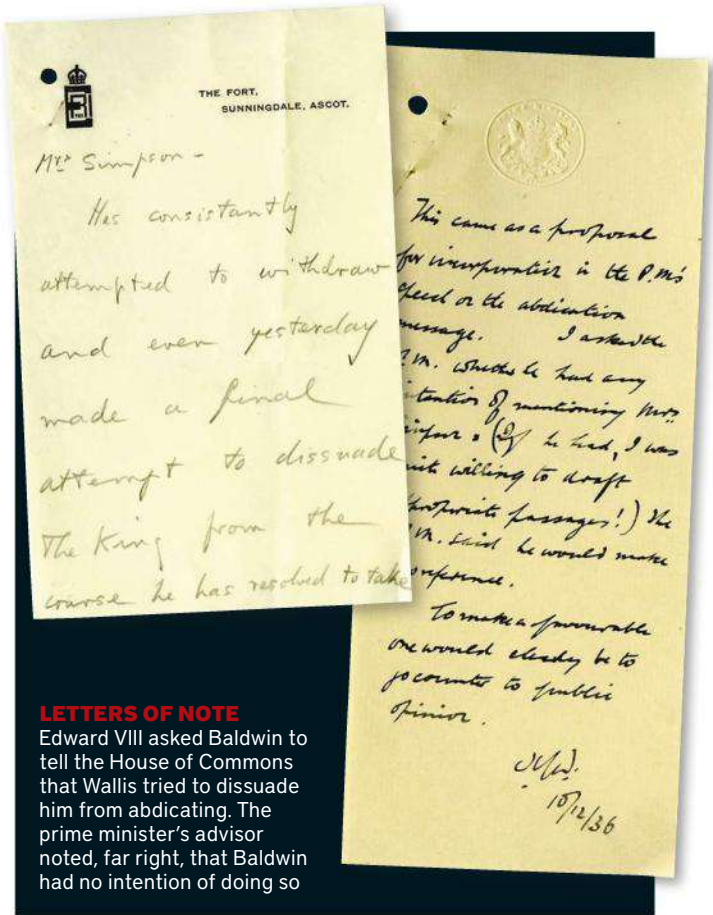 THE FORT,
SUNNINGDALE, ASCOT.
Mrs Simpson -
Has consistantly
attempted to withdraw
and even yesterday
made a final
attempt to dissuade
The King from the
course he has resolved to take
This came as a proposal
for incorporation in the P.M's
speech or the abdication
message. I asked the
P.M. whether he had any
intention of mentioning Mrs
(If he had, I was
willing to draft
appropriate passages!) The
P.M. said he would make
reference.
To make a favourable
one would clearly be to
go counter to public
opinion.
10/12/36
LETTERS OF NOTE
Edward VIII asked Baldwin to
tell the House of Commons
that Wallis tried to dissuade
him from abdicating. The
prime minister's advisor
noted, far right, that Baldwin
had no intention of doing so